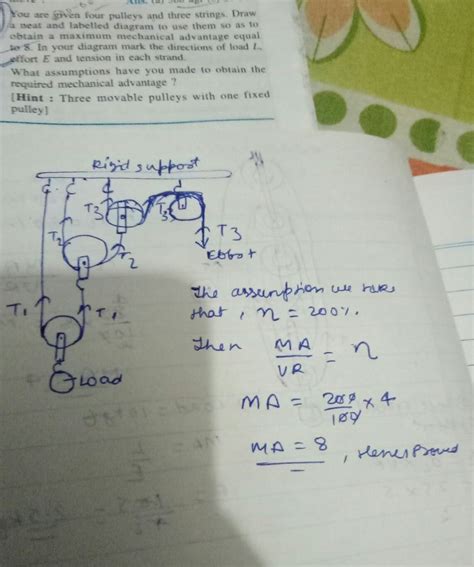 You are given four pulleys and three strings. Draw
a neat and labelled diagram to use them so as to
obtain a maximum mechanical advantage equal
to 8. In your diagram mark the directions of load L,
effort E and tension in each strand.
What assumptions have you made to obtain the
required mechanical advantage ?
[Hint : Three movable pulleys with one fixed
pulley]
Rigid support
T3
T3
T2
T2
T3
Effort
T1
T1
Load
The assumption we take
that, η = 200%.
Then MA/VR = η
MA = 200/100 × 4
MA = 8, Hence Proved